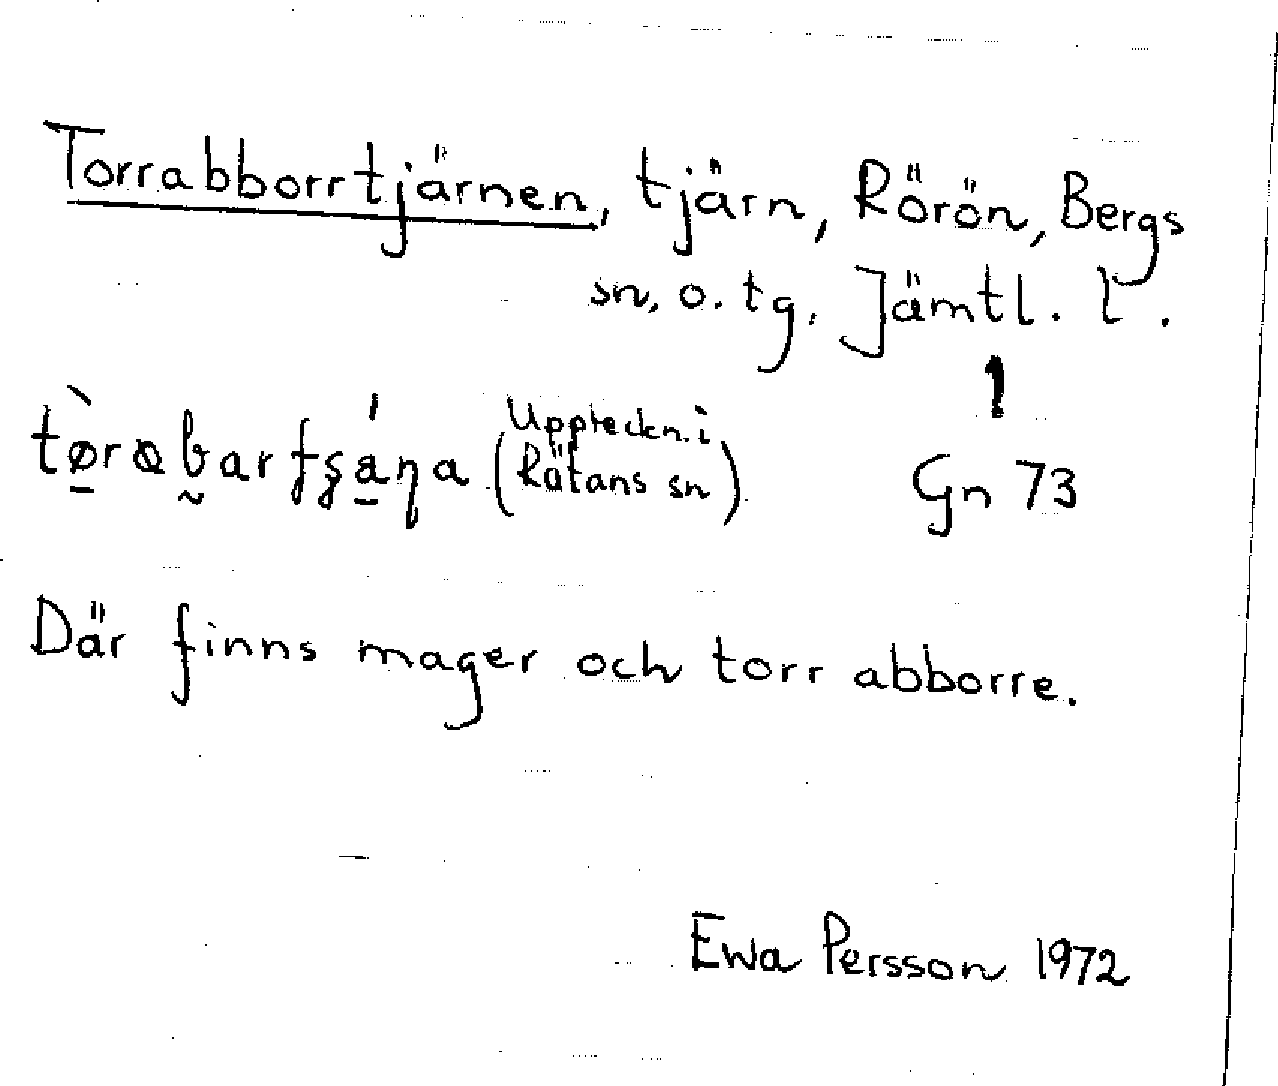 Torrabborrtjärnen, tjärn, Rörön, Bergs
sn. o. tg. Jämtl. l.
(Uppteckn. i
Rätans sn)
Gn 73
Där finns mager och torr abborre.
Ewa Persson 1972